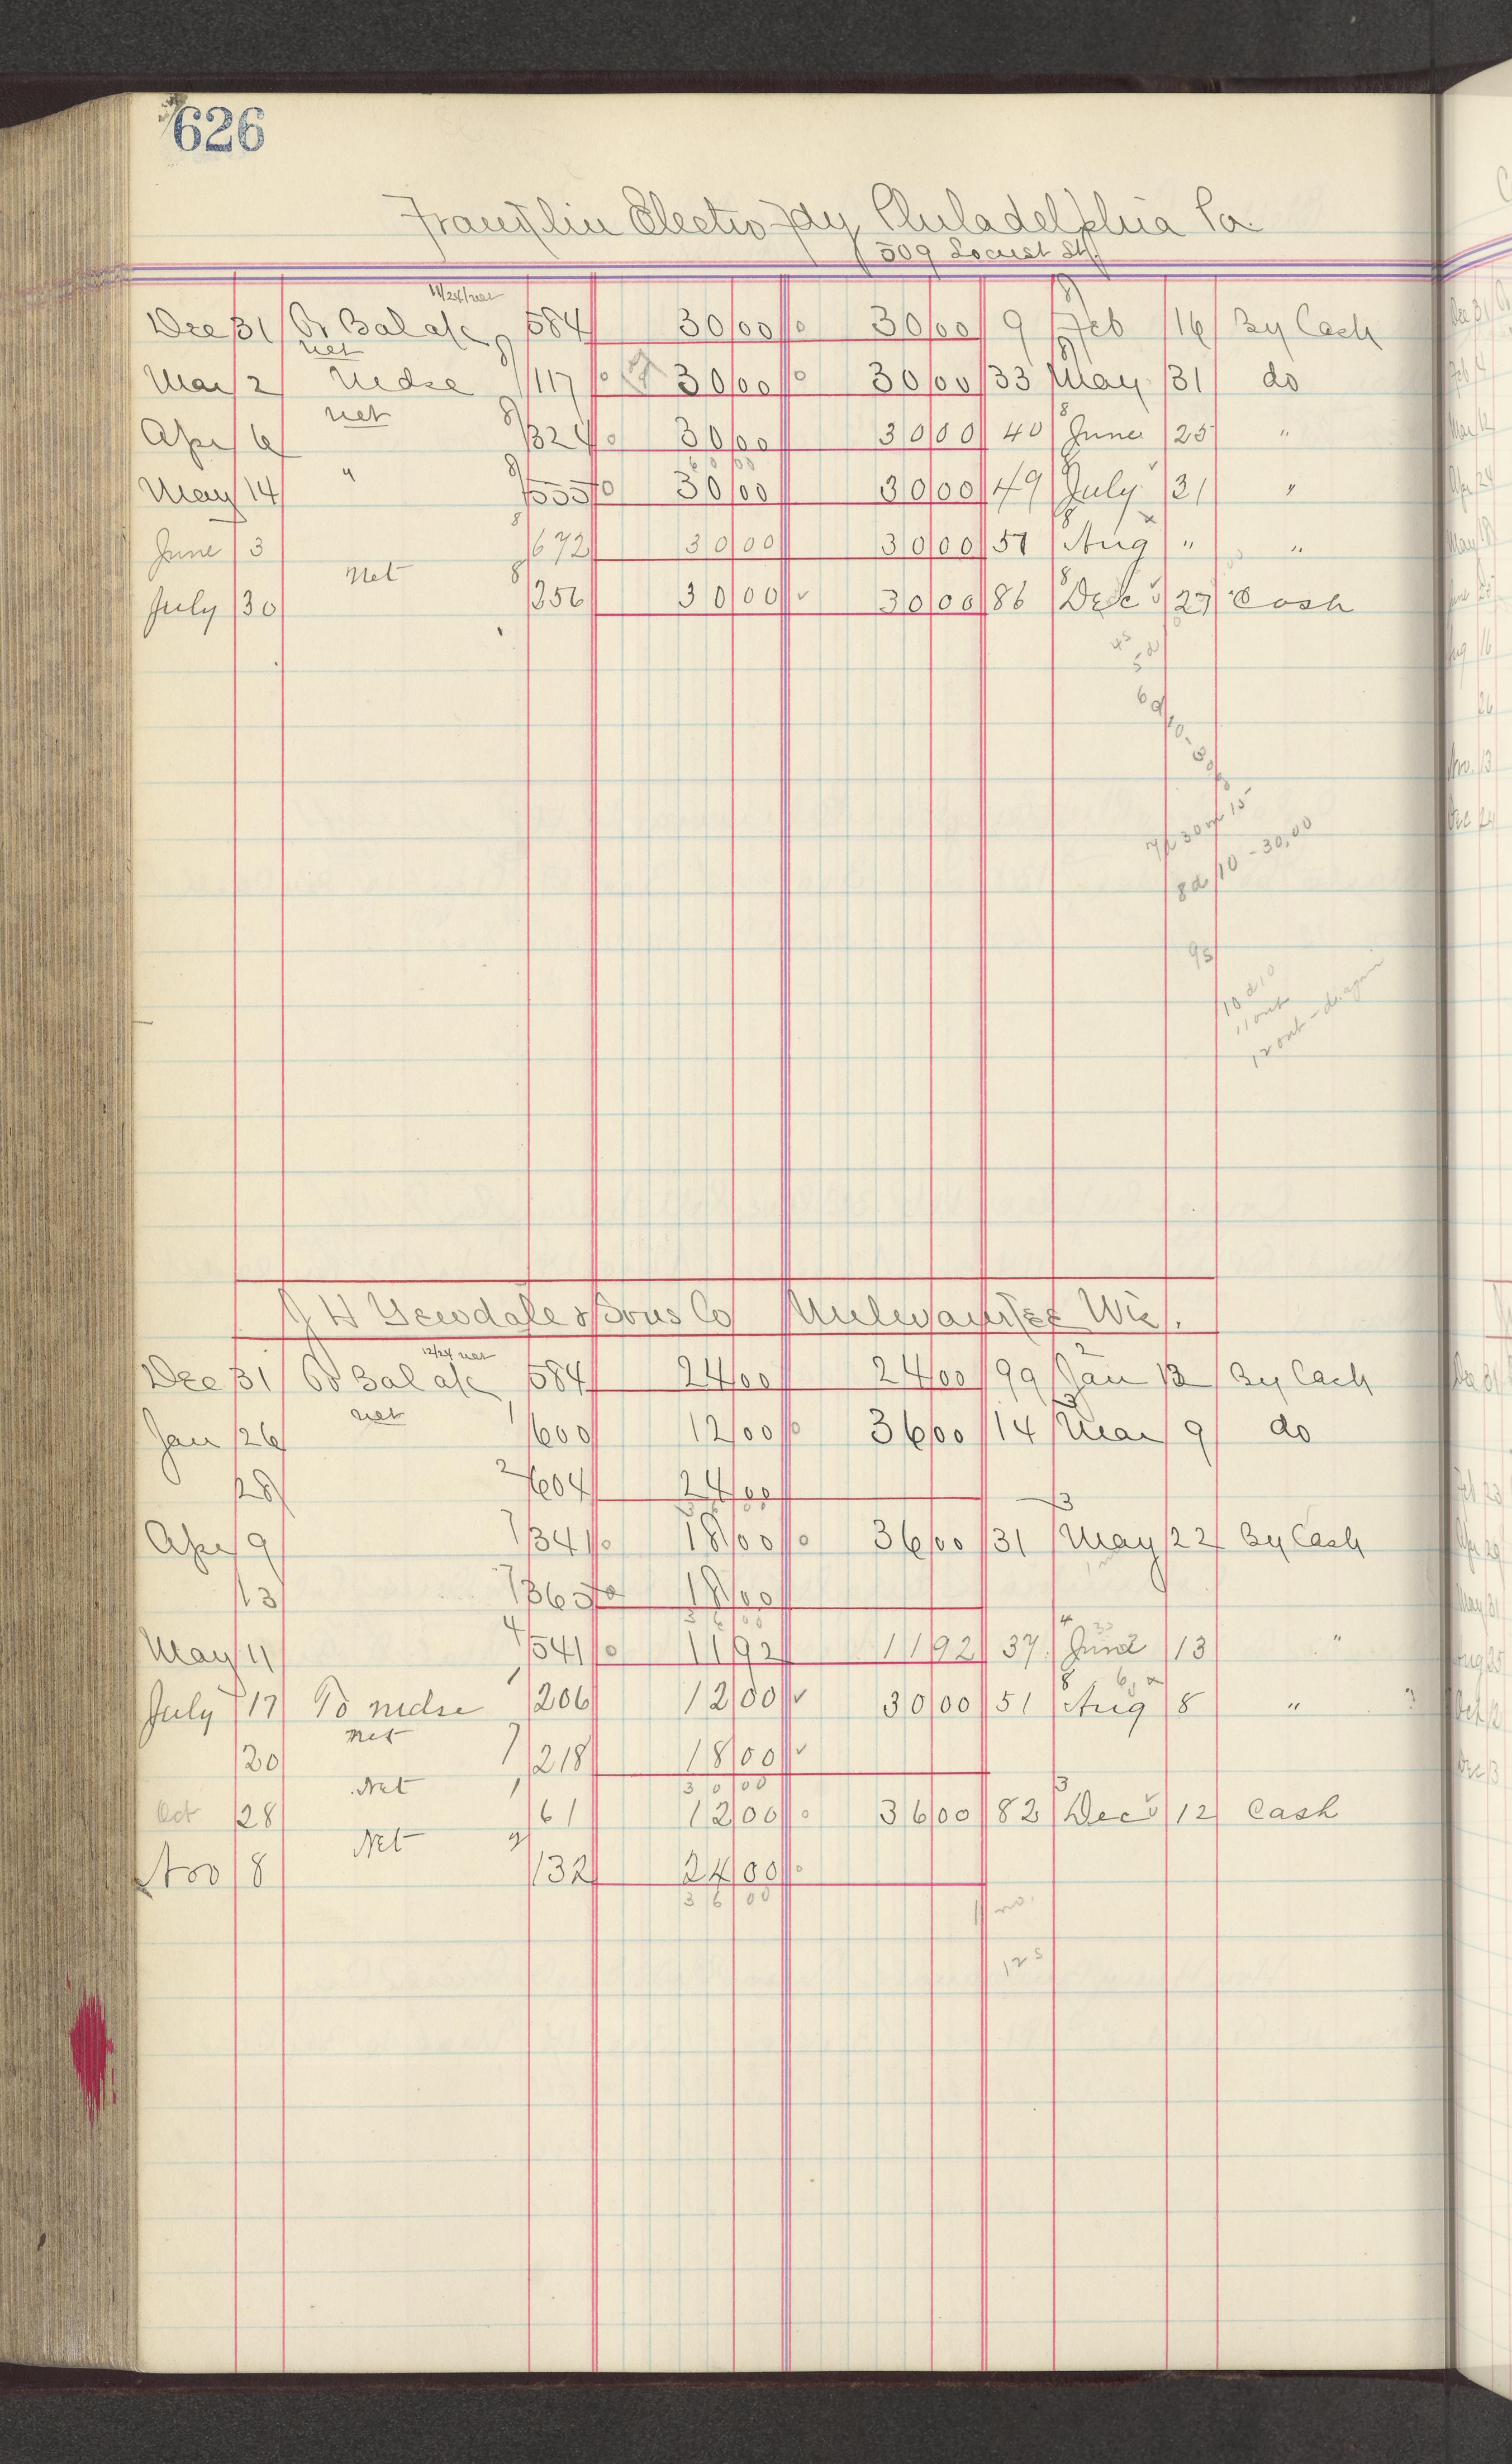 626
Franklin Electro Fdy Philadelphia Pa.
509 Locust St.
11/24/ net
Dec 31 To Bal a/c 8 584 30 00 o 30 00 9 8 Feb 16 By Cash
net
Mar 2 Mdse 8 117 o 30 00 o 30 00 33 8 May 31 do
net
Apr 6 8 324 o 30 00 30 00 40 8 June 25 "
60 00
May 14 " 8 555 o 30 00 30 00 49 8 July 31 "
June 3 8 672 30 00 30 00 57 8 Aug " "
net
July 30 8 256 30 00 ✓ 30 00 86 8 Dec 27 Cash
4s
5d
6d
10-30
7d 30 m 15
8d 10 - 30.00
9s
10 d 10
11 out
12 out - again
J H Yewdale & Sons Co Milwaukee Wis.
12/24 net
Dec 31 To Bal a/c 584 24 00 24 00 99 2 Jan 12 By Cash
net
Jan 26 1 600 12 00 o 36 00 14 3 Mar 9 do
28 2 604 24 00
36 00
Apr 9 7 341 o 18 00 o 36 00 31 3 May 22 By Cash
13 7 365 o 18 00
36 00
May 11 4 541 o 11 92 11 92 37 4 June 13 "
July 17 To mdse 1 206 12 00 ✓ 30 00 51 8 Aug 8 "
net
20 7 218 18 00 ✓
30 00
Net
Oct 28 1 61 12 00 o 36 00 82 3 Dec 12 Cash
Net
Nov 8 2 132 24 00 o
36 00
11 no.
12 s